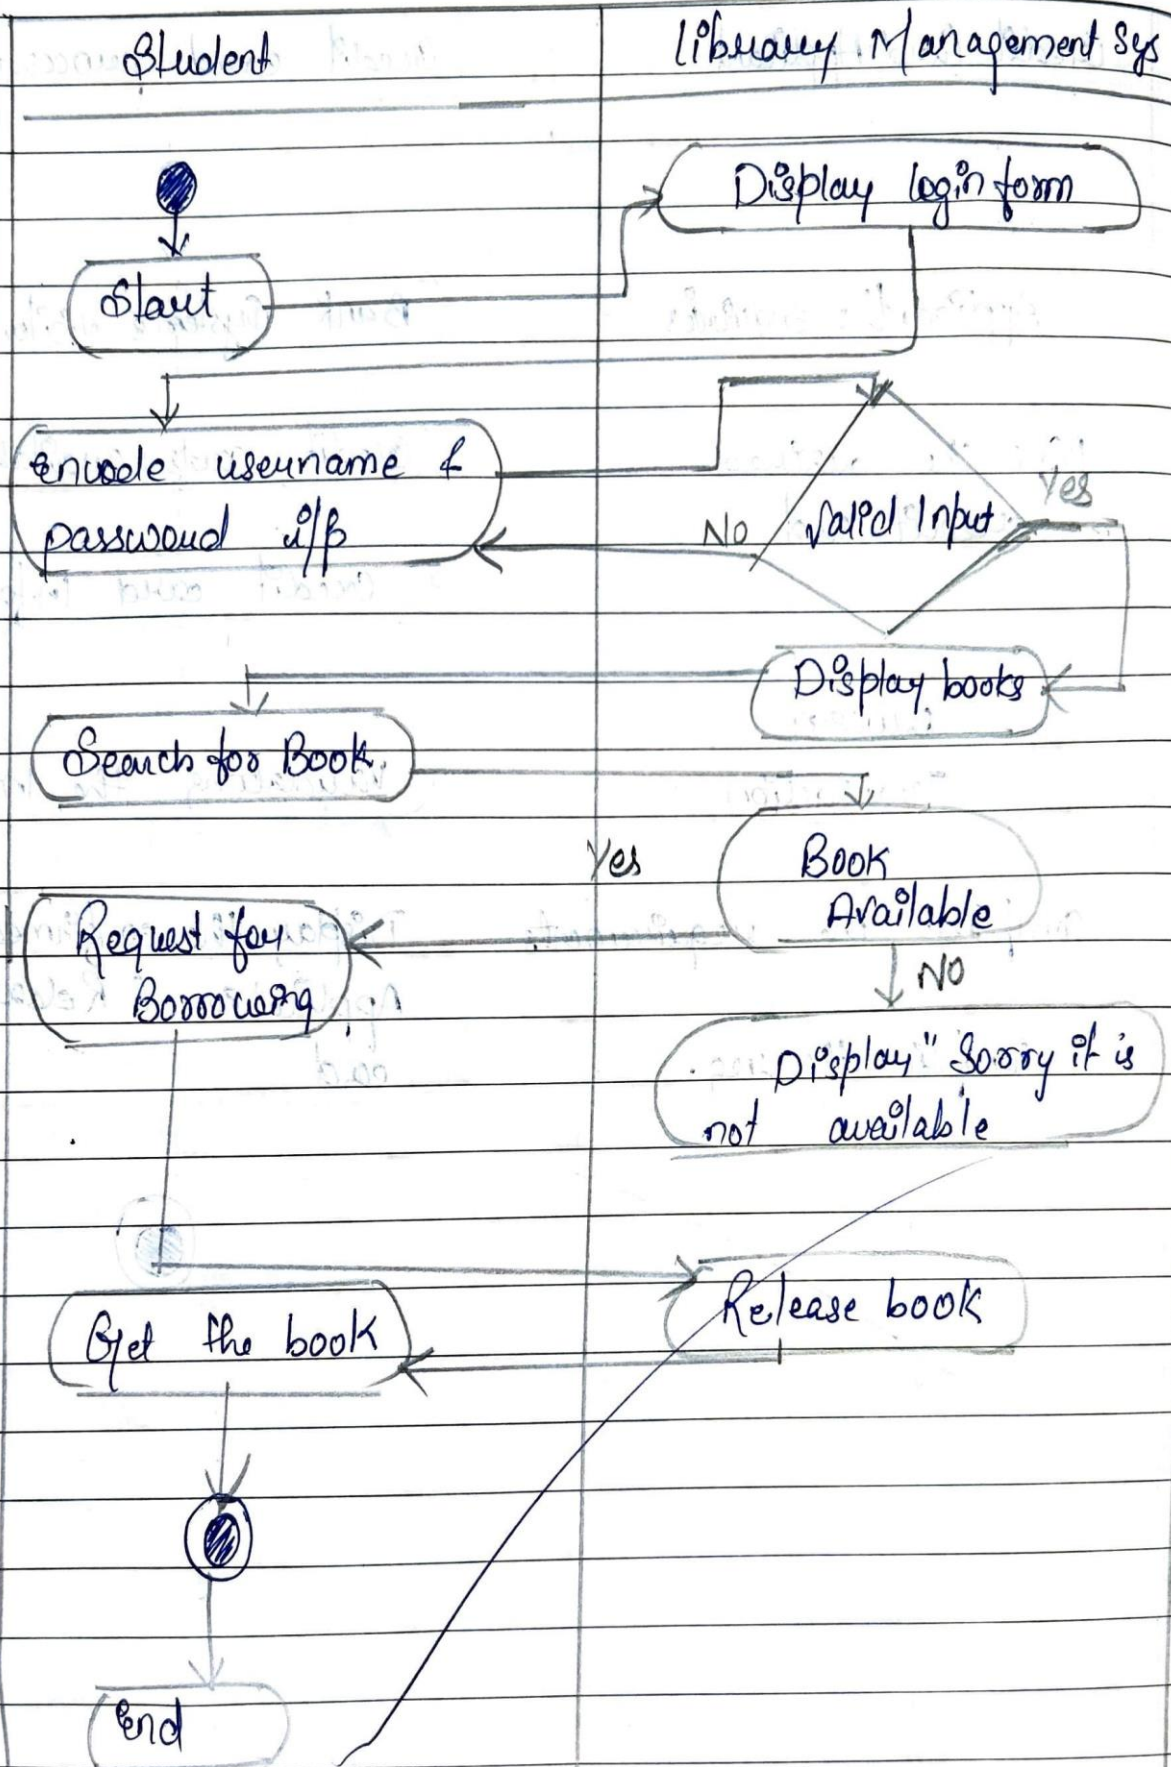 Student
Library Management Sys
Display login form
Start
Encode username &
password i/p
Valid Input
Yes
No
Display books
Search for Book
Book
Available
Yes
Request for
Borrowing
NO
Display "Sorry it is
not available
Release book
Get the book
End